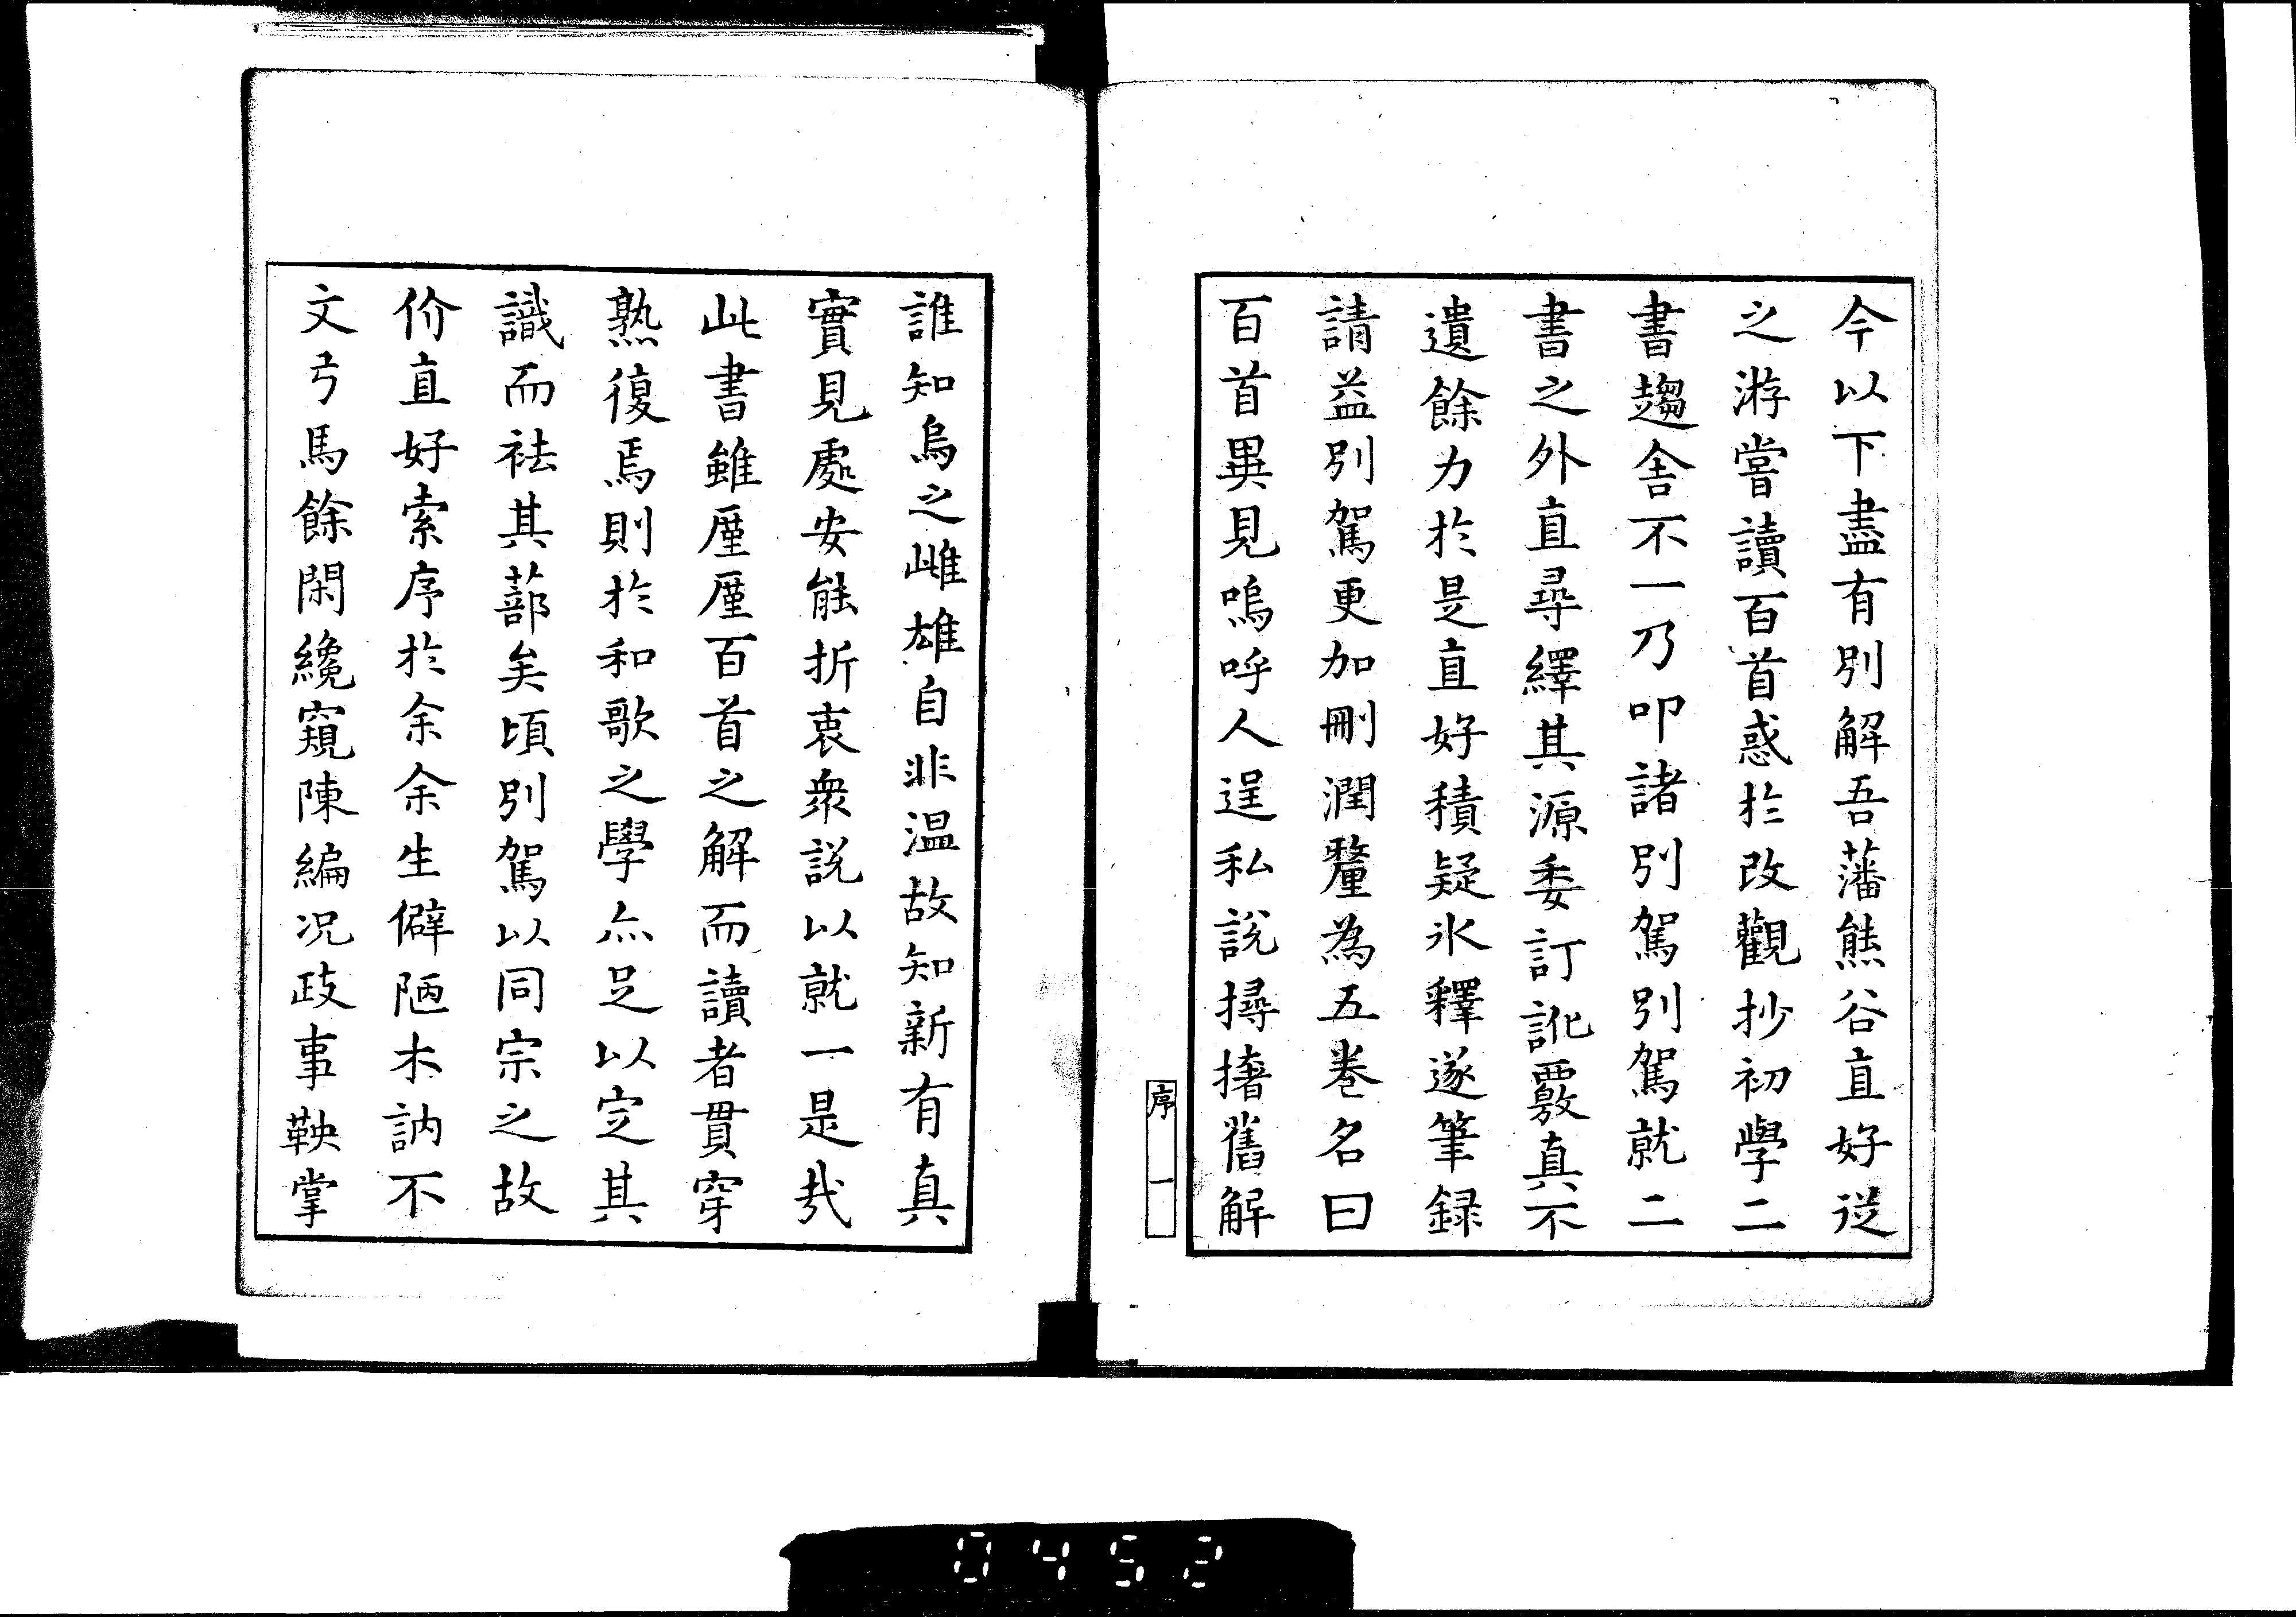 今以下盡有別解吾藩熊谷直好従
之游嘗讀百首惑於改觀抄初學二
書趨舎不一乃叩諸別駕別駕就二
書之外直尋繹其源委訂訛覈真不
遺餘力於是直好積疑氷釋遂筆録
請益別駕更加刪潤釐為五巻名曰
百首異見嗚呼人逞私說撏撦舊解
序 一
誰知烏之雌雄自非温故知新有真
實見處安能折衷衆說以就一是哉
此書雖厪厪百首之解而讀者貫穿
熟復焉則於和歌之學亦足以定其
識而袪其蔀矣頃別駕以同宗之故
价直好索序於余余生僻陋木訥不
文弓馬餘閑纔窺陳編况政事鞅掌
0452